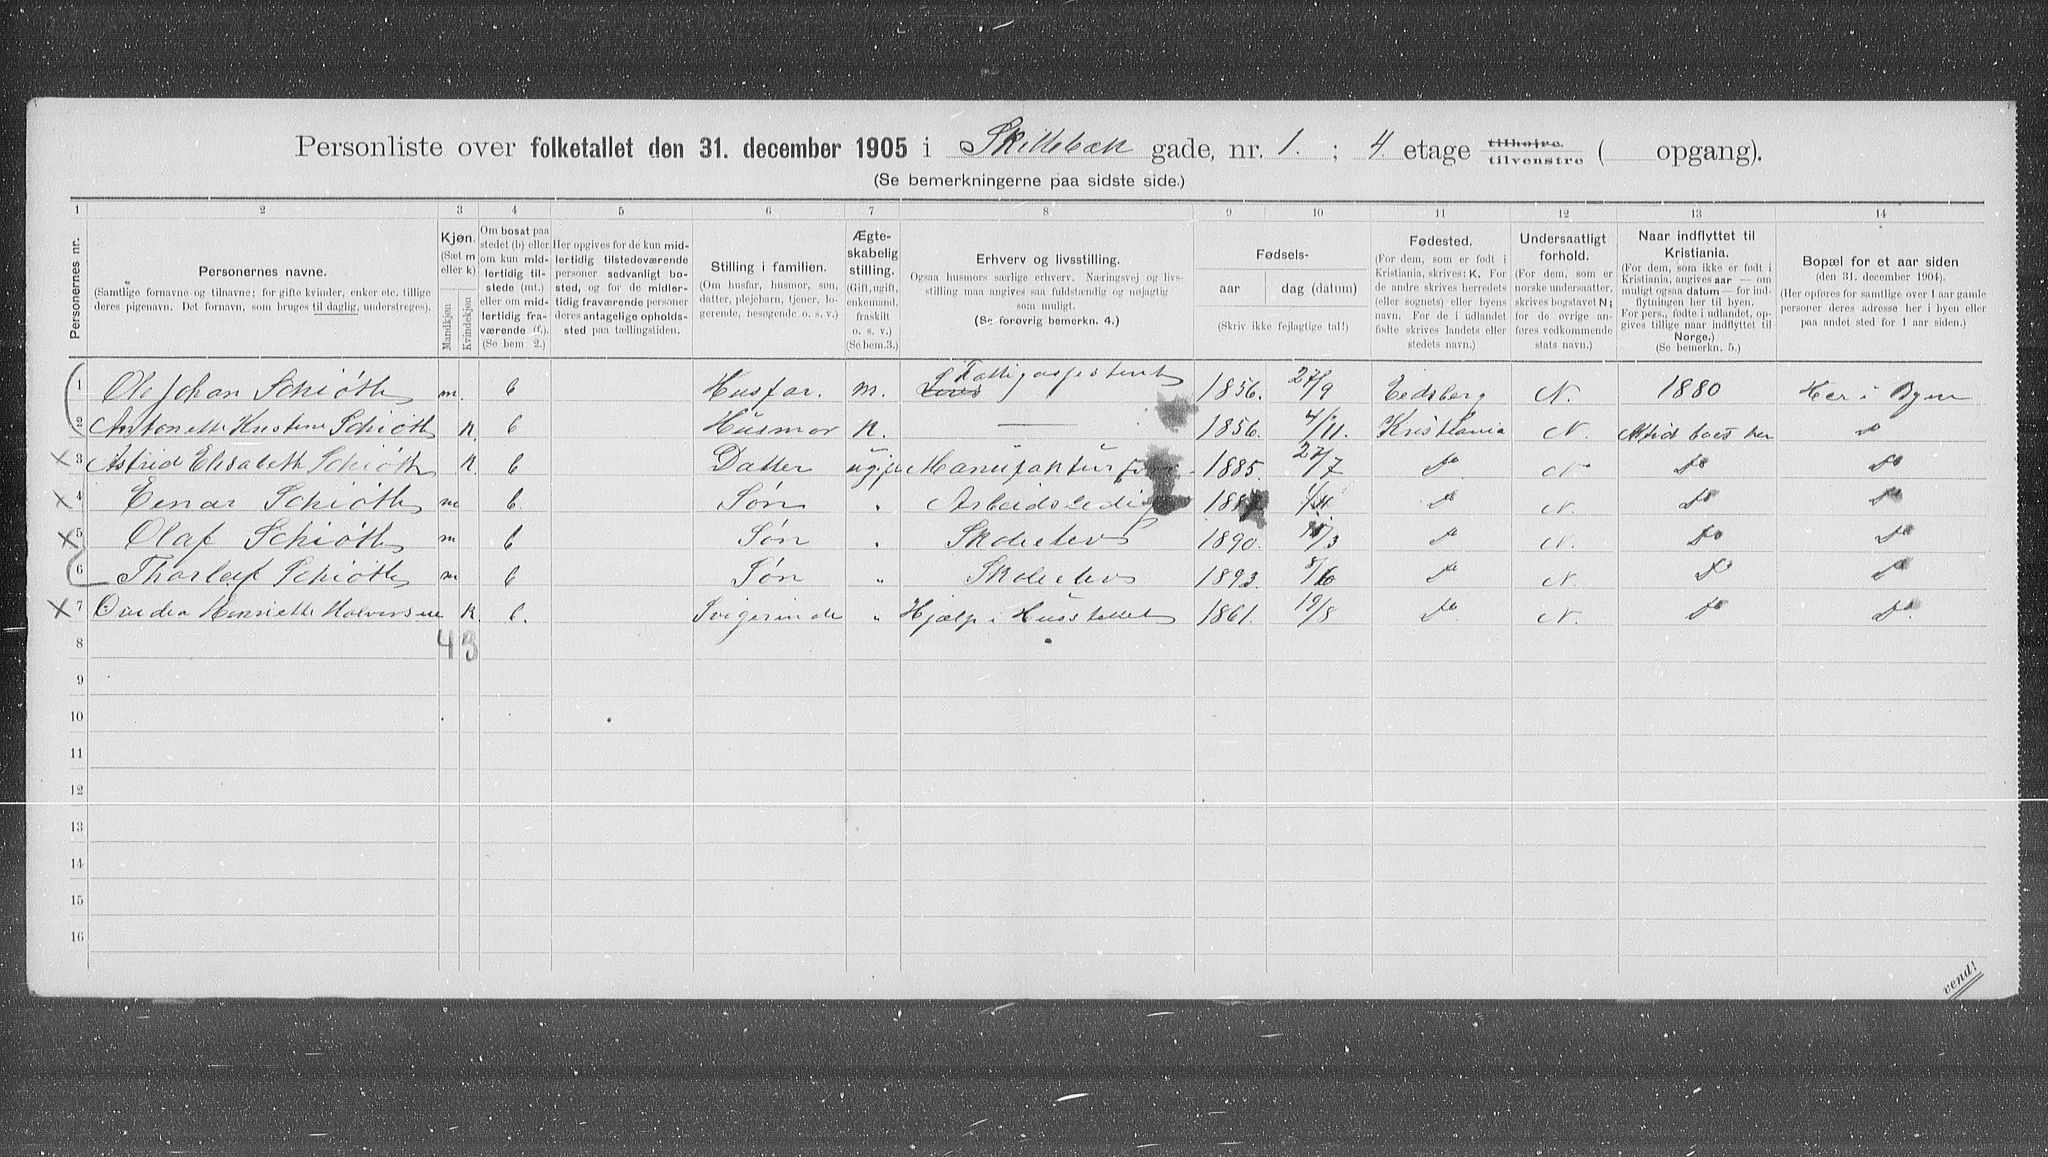 Personliste over folketallet den 31. december 1905 i Skillebæk gade, nr. 1. ; 4. etage tilhøire. tilvenstre ( opgang).
(Se bemerkningerne paa sidste side.)
1 2 3 4 5 6 7 8 9 10 11 12 13 14
Personernes nr.
Personernes navne.
(Samtlige fornavne og tilnavne; for gifte kvinder, enker etc. tillige
deres pigenavn. Det fornavn, som bruges til daglig, understreges).
Kjøn.
(Sæt m
eller k)
Mandkjøn
Kvindekjøn
Om bosat paa
stedet (b) eller
om kun mid-
lertidig til-
stede (mt.)
eller om mid-
lertidig fra-
værende (f.)
(Se bem 2.)
Her opgives for de kun mid-
lertidig tilstedeværende
personer sedvanlig bo-
sted, og for de midler-
tidig fraværende personer
deres antagelige opholds-
sted paa tællingstiden.
Stilling i familien.
(Om husfar, husmor, søn,
datter, plejebarn, tjener, lo-
gerende, besøgende o. s. v.)
Ægte-
skabelig
stilling.
(Gift, ugift,
enkemand,
fraskilt
o. s. v.)
(Se bem.3.)
Erhverv og livsstilling.
Ogsaa husmors særlige erhverv. Næringsvej og livs-
stilling maa angives saa fuldstændig og nøjagtig
som muligt.
(Se forøvrig bemerkn. 4.)
Fødsels-
aar dag (datum)
(Skriv ikke fejlagtige tal!)
Fødested.
(For dem, som er født i
Kristiania, skrives: K. For
de andre skrives herredets
(eller sognets) eller byens
navn. For de i udlandet
fødte skrives landets eller
stedets navn.)
Undersaatligt
forhold.
(For dem, som er
norske undersaatter,
skrives bogstavet N;
for de øvrige an-
føres vedkommende
stats navn.)
Naar indflyttet til
Kristiania.
(For dem, som ikke er født i
Kristiania, angives aar — om
muligt ogsaa datum — for ind-
flytningen her til byen.
For pers., fødte i udlandet, op-
gives tillige naar indflyttet til
Norge.)
(Se bemerkn. 5.)
Bopæl for et aar siden
(den 31. december 1904).
(Her opføres for samtlige over 1 aar gamle
personer deres adresse her i byen eller
paa andet sted for 1 aar siden.)
1 Ole Johan Schiøth m. b Husfar. m. Fattigassistent 1856. 27/9 Eidsberg N. 1880 Her i Byen
2 Antonette Kristine Schiøth K. b Husmor K. — 1856. 4/11. Kristiania N. Altid boet her Do
X 3 Astrid Elisabeth Schiøth K. b Datter ugift Manufaktur 1885. 27/7 Do N Do Do
X 4 Einar Schiøth m b. Søn " Arbeidsledig 188 1/11. Do N. Do Do
X 5 Olaf Schiøth m b Søn " Skoleelev 1890. /3 Do N. Do Do
6 Thorleif Schiøth m b Søn " Skoleelev 1893. 8/6 Do N. Do Do
X 7 Henriette Halvorsen K. b. Svigerinde " Hjælp i Husstellet 1861. 19/8 Do N. Do Do
8 4 3
9
10
11
12
13
14
15
16
vend!